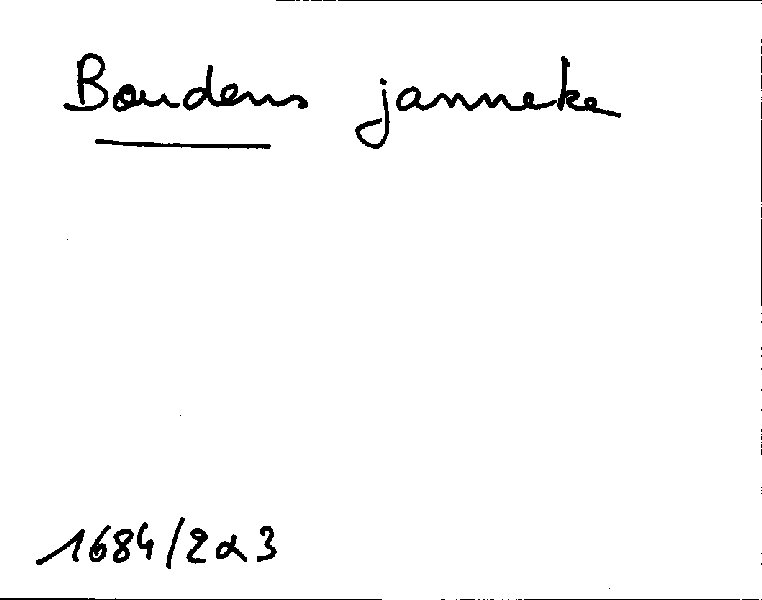 Boudens janneke
1684/2α3